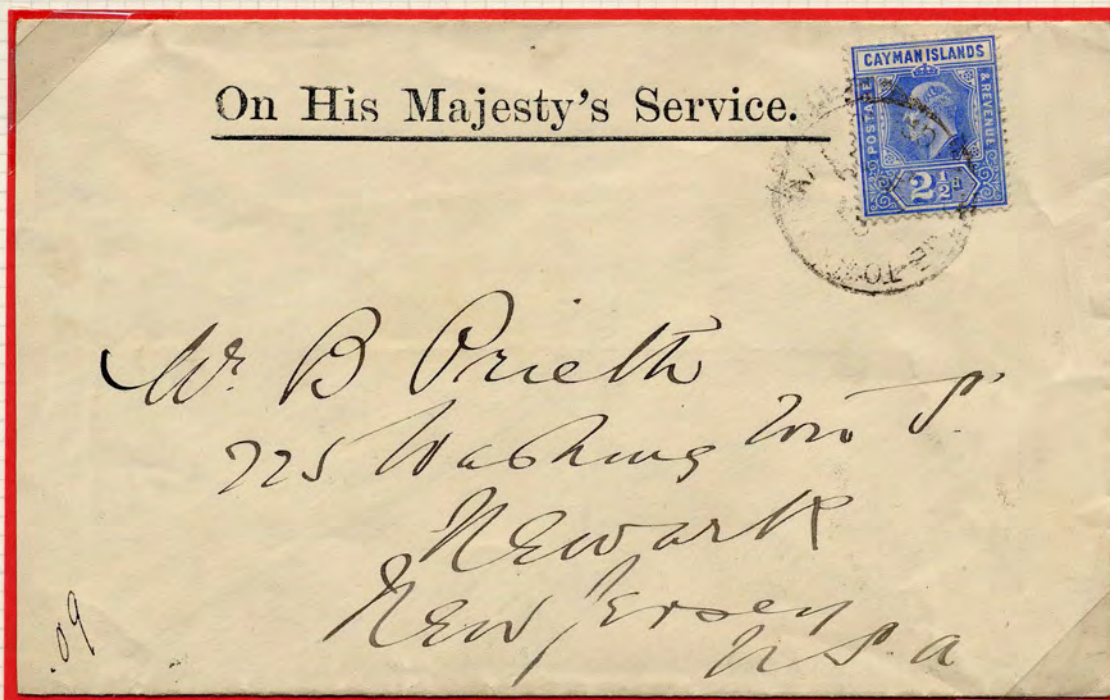 On His Majesty's Service.
CAYMAN ISLANDS
POSTAGE
& REVENUE
2 1/2 d
Mr. B Prieth
225 Washington S.
Newark
New Jersey
U.S.A
.09